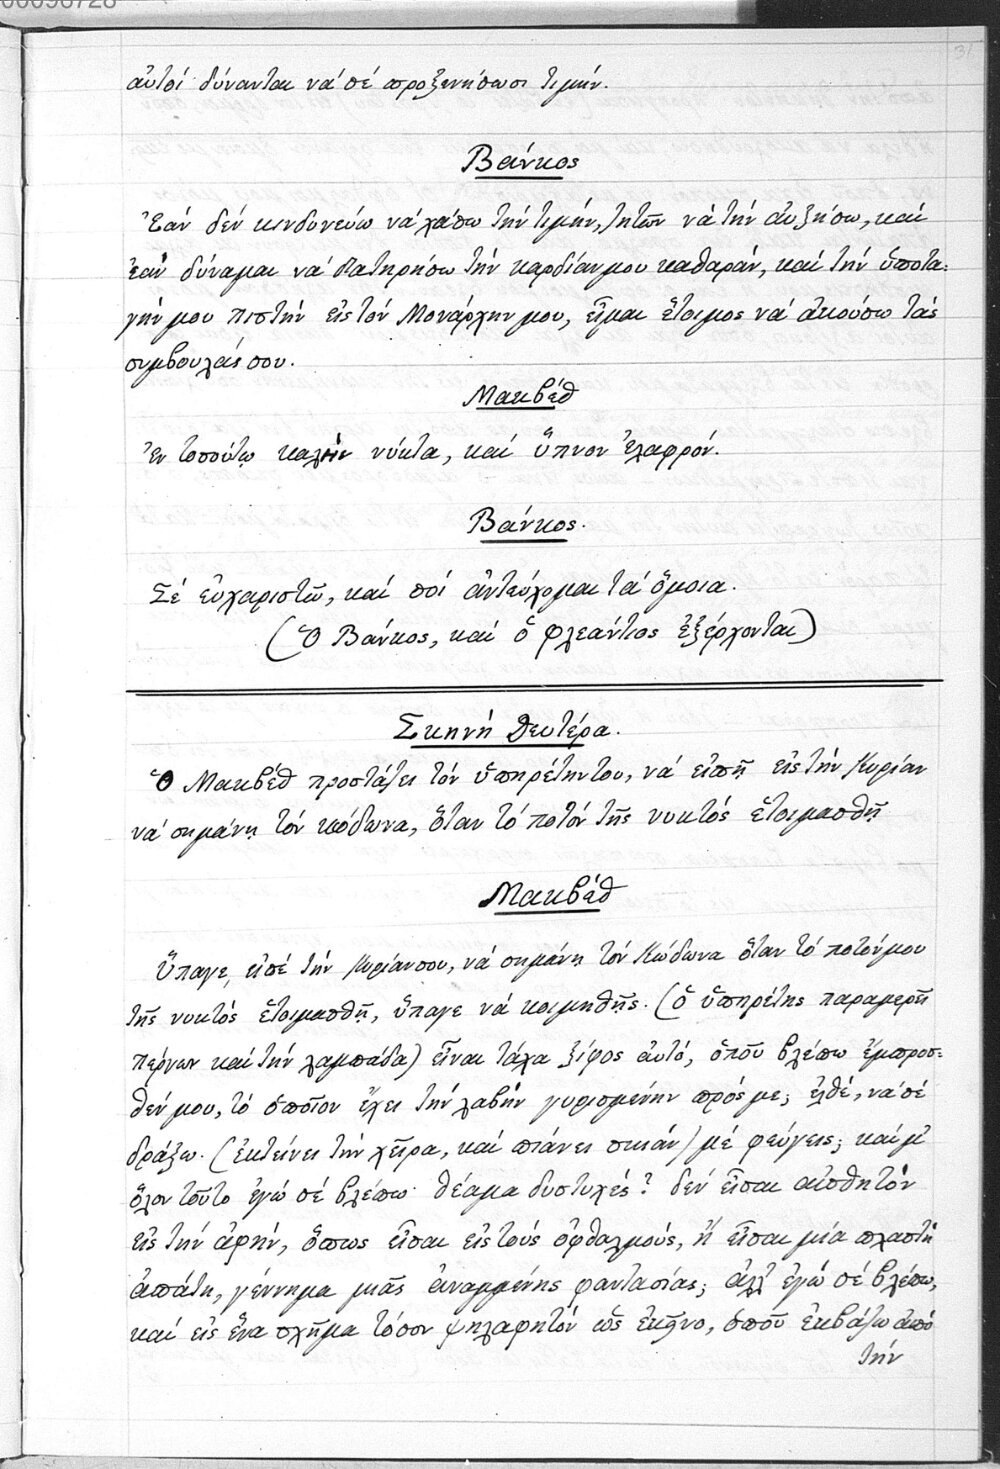 00098728
31
αὐτοί δύνανται νά σέ προξενήσωσι τιμήν.
Βάνκος
Ἐάν δέν κινδυνεύω νά χάσω τήν τιμήν, ζητῶν νά τήν αὐξήσω, καί
ἐάν δύναμαι νά διατηρήσω τήν καρδίαν μου καθαράν, καί τήν ὑποτα-
γήν μου πιστήν εἰς τόν Μονάρχην μου, εἶμαι ἕτοιμος νά ἀκούσω τάς
συμβουλάς σου.
Μακβέθ
Ἐν τοσούτῳ καλήν νύκτα, καί ὕπνον ἐλαφρόν.
Βάνκος.
Σέ εὐχαριστῶ, καί σοί ἀντεύχομαι τά ὅμοια.
(Ὁ Βάνκος, καί ὁ Φλεάντιος ἐξέρχονται)
Σκηνή Δευτέρα.
Ὁ Μακβέθ προστάζει τόν ὑπηρέτην του, νά εἰπῇ εἰς τήν Κυρίαν
νά σημάνῃ τόν κώδωνα, ὅταν τό ποτόν τῆς νυκτός ἑτοιμασθῇ
Μακβέθ
Ὕπαγε, εἰπέ τήν Κυρίαν σου, νά σημάνῃ τόν Κώδωνα ὅταν τό ποτόν μου
τῆς νυκτός ἑτοιμασθῇ, ὕπαγε νά κοιμηθῇς. (ὁ ὑπηρέτης παραμερῇ
πέρνων καί τήν λαμπάδα) εἶναι τάχα ξίφος αὐτό, ὁποῦ βλέπω ἔμπροσ-
θέν μου, τό ὁποῖον ἔχει τήν λαβήν γυρισμένην πρός με; ἐλθέ, νά σέ
δράξω. (ἐκτείνει τήν χεῖρα, καί πιάνει σκιάν) μέ φεύγεις; καί μ'
ὅλον τοῦτο ἐγώ σέ βλέπω. θέαμα δυστυχές! δέν εἶσαι αἰσθητόν
εἰς τήν ἁφήν, ὅπως εἶσαι εἰς τούς ὀφθαλμούς, ἤ εἶσαι μία πλαστή
ἀπάτη, γέννημα μιᾶς ἀναμμένης φαντασίας; ἀλλ' ἐγώ σέ βλέπω,
καί εἰς ἕνα σχῆμα τόσον ψηλαφητόν ὡς ἐκεῖνο, ὁποῦ ἐκβάζω ἀπό
τήν